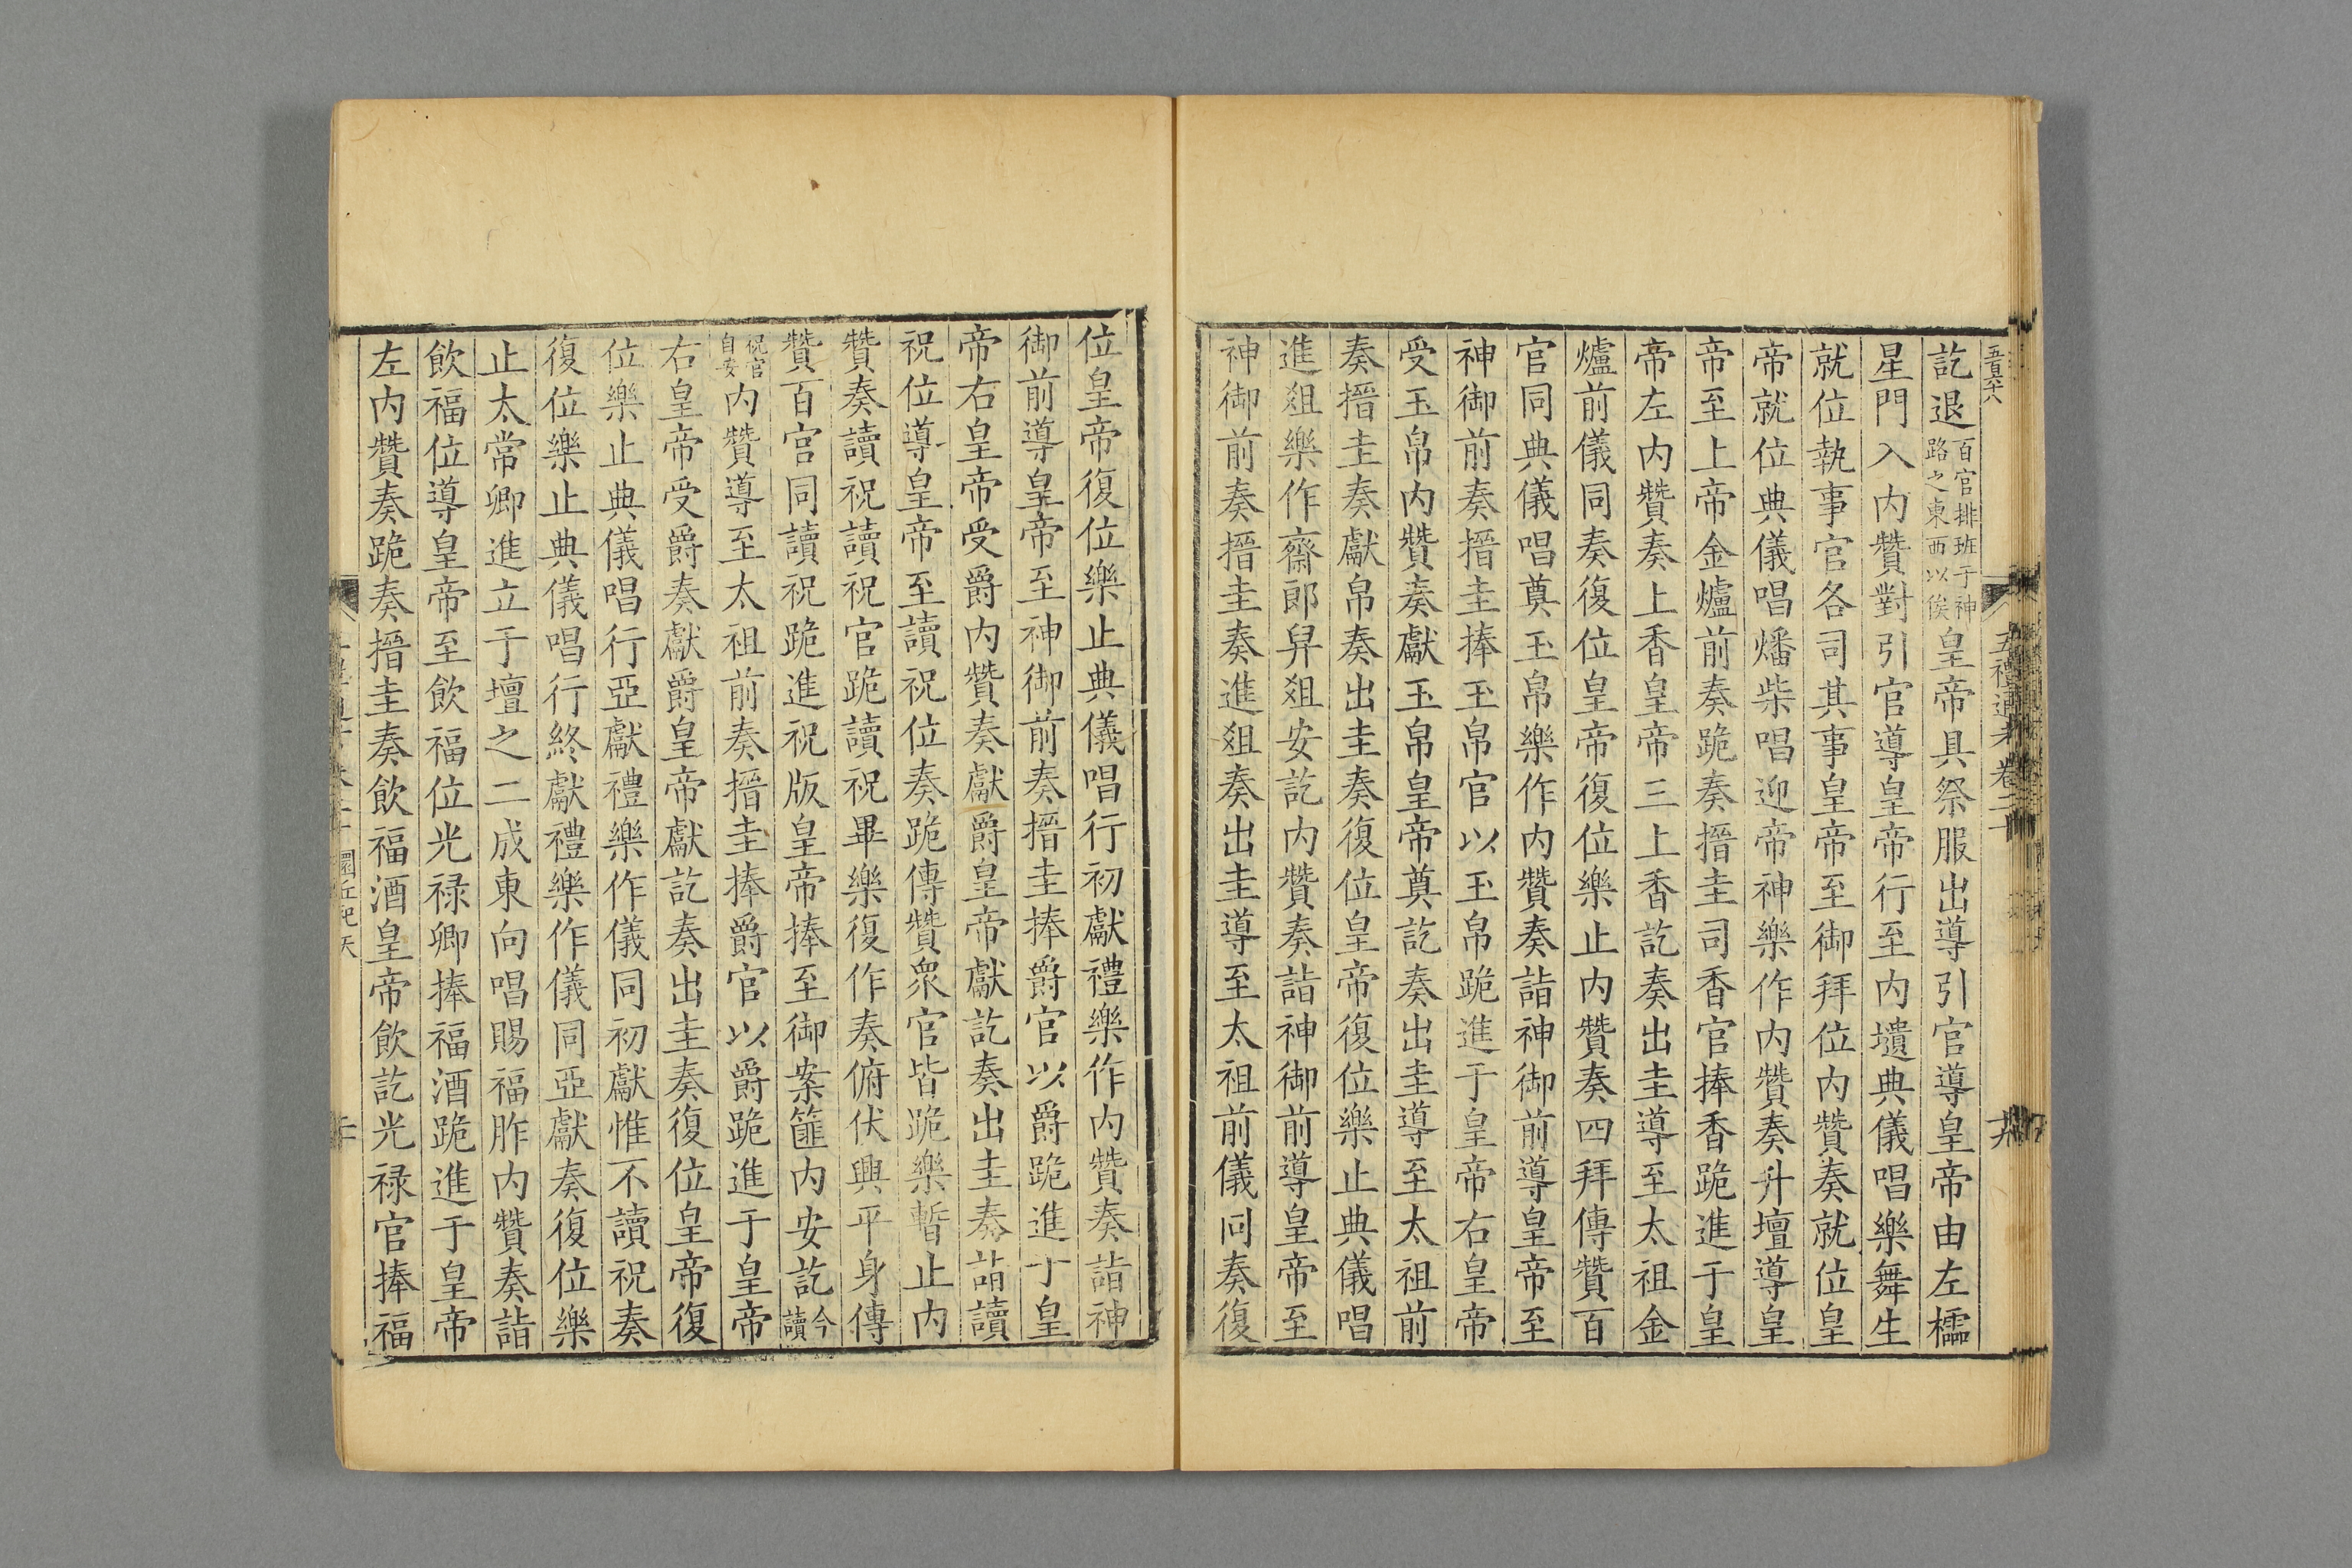 五百六八
五禮通考卷二十
訖退百官排班于神路之東西以俟皇帝具祭服出導引官導皇帝由左櫺
星門入內贊對引官導皇帝行至內壝典儀唱樂舞生
就位執事官各司其事皇帝至御拜位內贊奏就位皇
帝就位典儀唱燔柴唱迎帝神樂作內贊奏升壇導皇
帝至上帝金爐前奏跪奏搢圭司香官捧香跪進于皇
帝左內贊奏上香皇帝三上香訖奏出圭導至太祖金
爐前儀同奏復位皇帝復位樂止內贊奏四拜傳贊百
官同典儀唱奠玉帛樂作內贊奏詣神御前導皇帝至
神御前奏搢圭捧玉帛官以玉帛跪進于皇帝右皇帝
受玉帛內贊奏獻玉帛皇帝奠訖奏出圭導至太祖前
奏搢圭奏獻帛奏出圭奏復位皇帝復位樂止典儀唱
進俎樂作齋郎舁俎安訖內贊奏詣神御前導皇帝至
神御前奏搢圭奏進俎奏出圭導至太祖前儀同奏復
位皇帝復位樂止典儀唱行初獻禮樂作內贊奏詣神
御前導皇帝至神御前奏搢圭捧爵官以爵跪進于皇
帝右皇帝受爵內贊奏獻爵皇帝獻訖奏出圭奏詣讀
祝位導皇帝至讀祝位奏跪傳贊衆官皆跪樂暫止內
贊奏讀祝讀祝官跪讀祝畢樂復作奏俯伏興平身傳
贊百官同讀祝跪進祝版皇帝捧至御案篚內安訖今讀
祝官自安內贊導至太祖前奏搢圭捧爵官以爵跪進于皇帝
右皇帝受爵奏獻爵皇帝獻訖奏出圭奏復位皇帝復
位樂止典儀唱行亞獻禮樂作儀同初獻惟不讀祝奏
復位樂止典儀唱行終獻禮樂作儀同亞獻奏復位樂
止太常卿進立于壇之二成東向唱賜福胙內贊奏詣
飲福位導皇帝至飲福位光禄卿捧福酒跪進于皇帝
左內贊奏跪奏搢圭奏飲福酒皇帝飲訖光禄官捧福
圜丘祀天